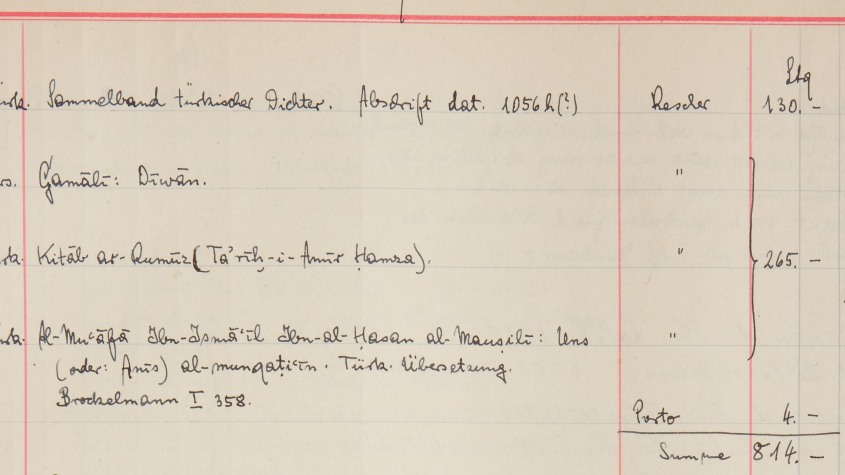 Ltq
Türk. Sammelband türkischer Dichter. Abschrift dat. 1056 h(?) Rescher 130.–
rs. Ǧamālī: Dīwān. "
rk. Kitāb ar-Rumūz (Ta'rīḫ-i-Amīr Ḥamza). " 265.–
rk. Al-Mu'āfā Ibn-Ismā'īl Ibn-al-Ḥasan al-Mauṣilī: Uns "
(oder: Anīs) al-munqaṭi'īn. Türk. Übersetzung.
Brockelmann I 358.
Porto 4.–
Summe 814.–